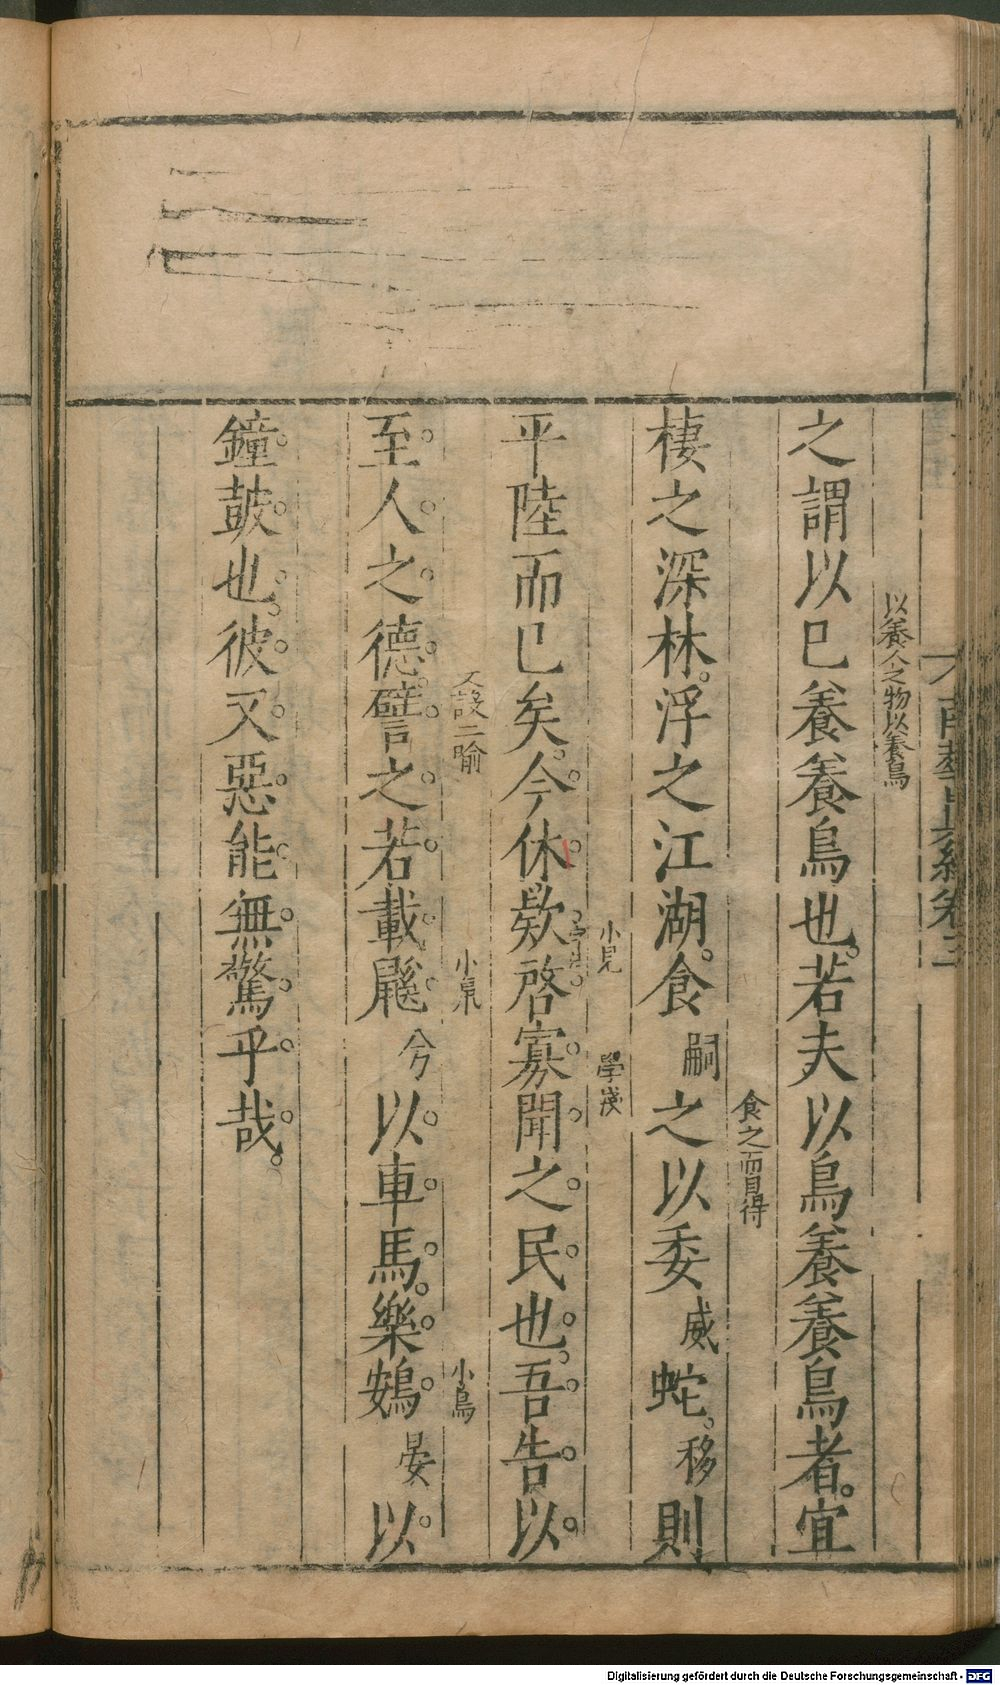 南華真經卷三
以養人之物以養鳥
之謂以已養養鳥也。若夫以鳥養養鳥者。宜
食之而自得
棲之深林。浮之江湖。食嗣之以委威蛇。移則
小見 學淺
平陸而已矣。今休欵啓寡聞之民也。吾告以
又設二喻 小鼠 小鳥
至人之德。譬之若載鼷兮以車馬。樂鴳晏以
鐘鼓也。彼又惡能無驚乎哉。
Digitalisierung gefördert durch die Deutsche Forschungsgemeinschaft - DFG